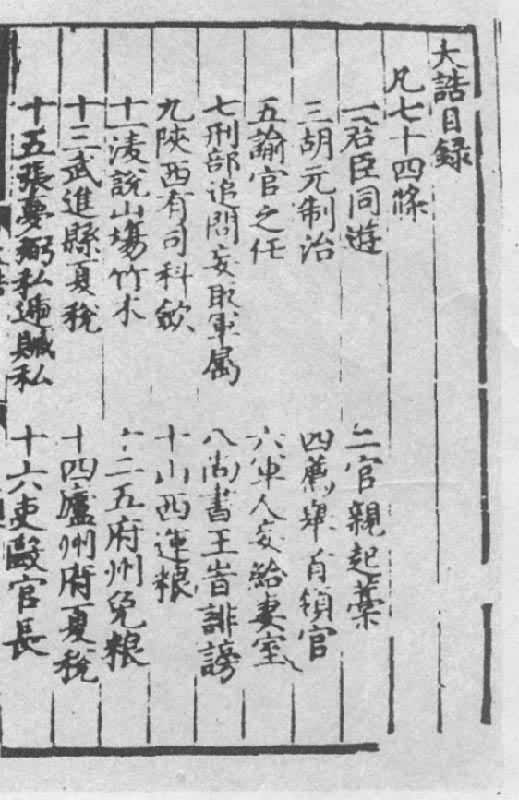 大誥目録
凡七十四條
一君臣同遊 二官親起藁
三胡元制治 四薦舉首領官
五諭官之任 六軍人妄給妻室
七刑部追問妄取軍属 八尚書王峕誹謗
九陝西有司科歛 十山西運粮
十一淩說山場竹木 十二五府州免粮
十三武進縣夏稅 十四廬州府夏稅
十五張夢弼私遞贓私 十六吏毆官長